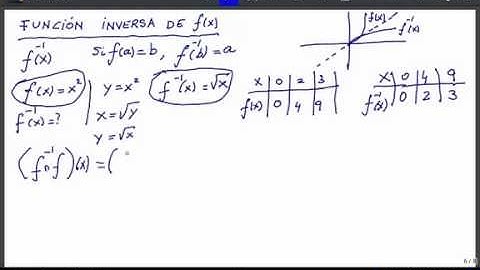 FUNCIÓN INVERSA DE f(x)
f⁻¹(x) Si f(a)=b, f⁻¹(b)=a
f(x)=x² y=x² f⁻¹(x)=√x
f⁻¹(x)=? x=√y
y=√x
(f⁻¹ₙf)(x)=(
f(x) f⁻¹(x)
x 0 2 3
f(x) 0 4 9
x 0 4 9
f⁻¹(x) 0 2 3